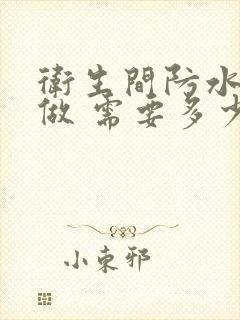 衛生間防水
做 需要多少
小東邪